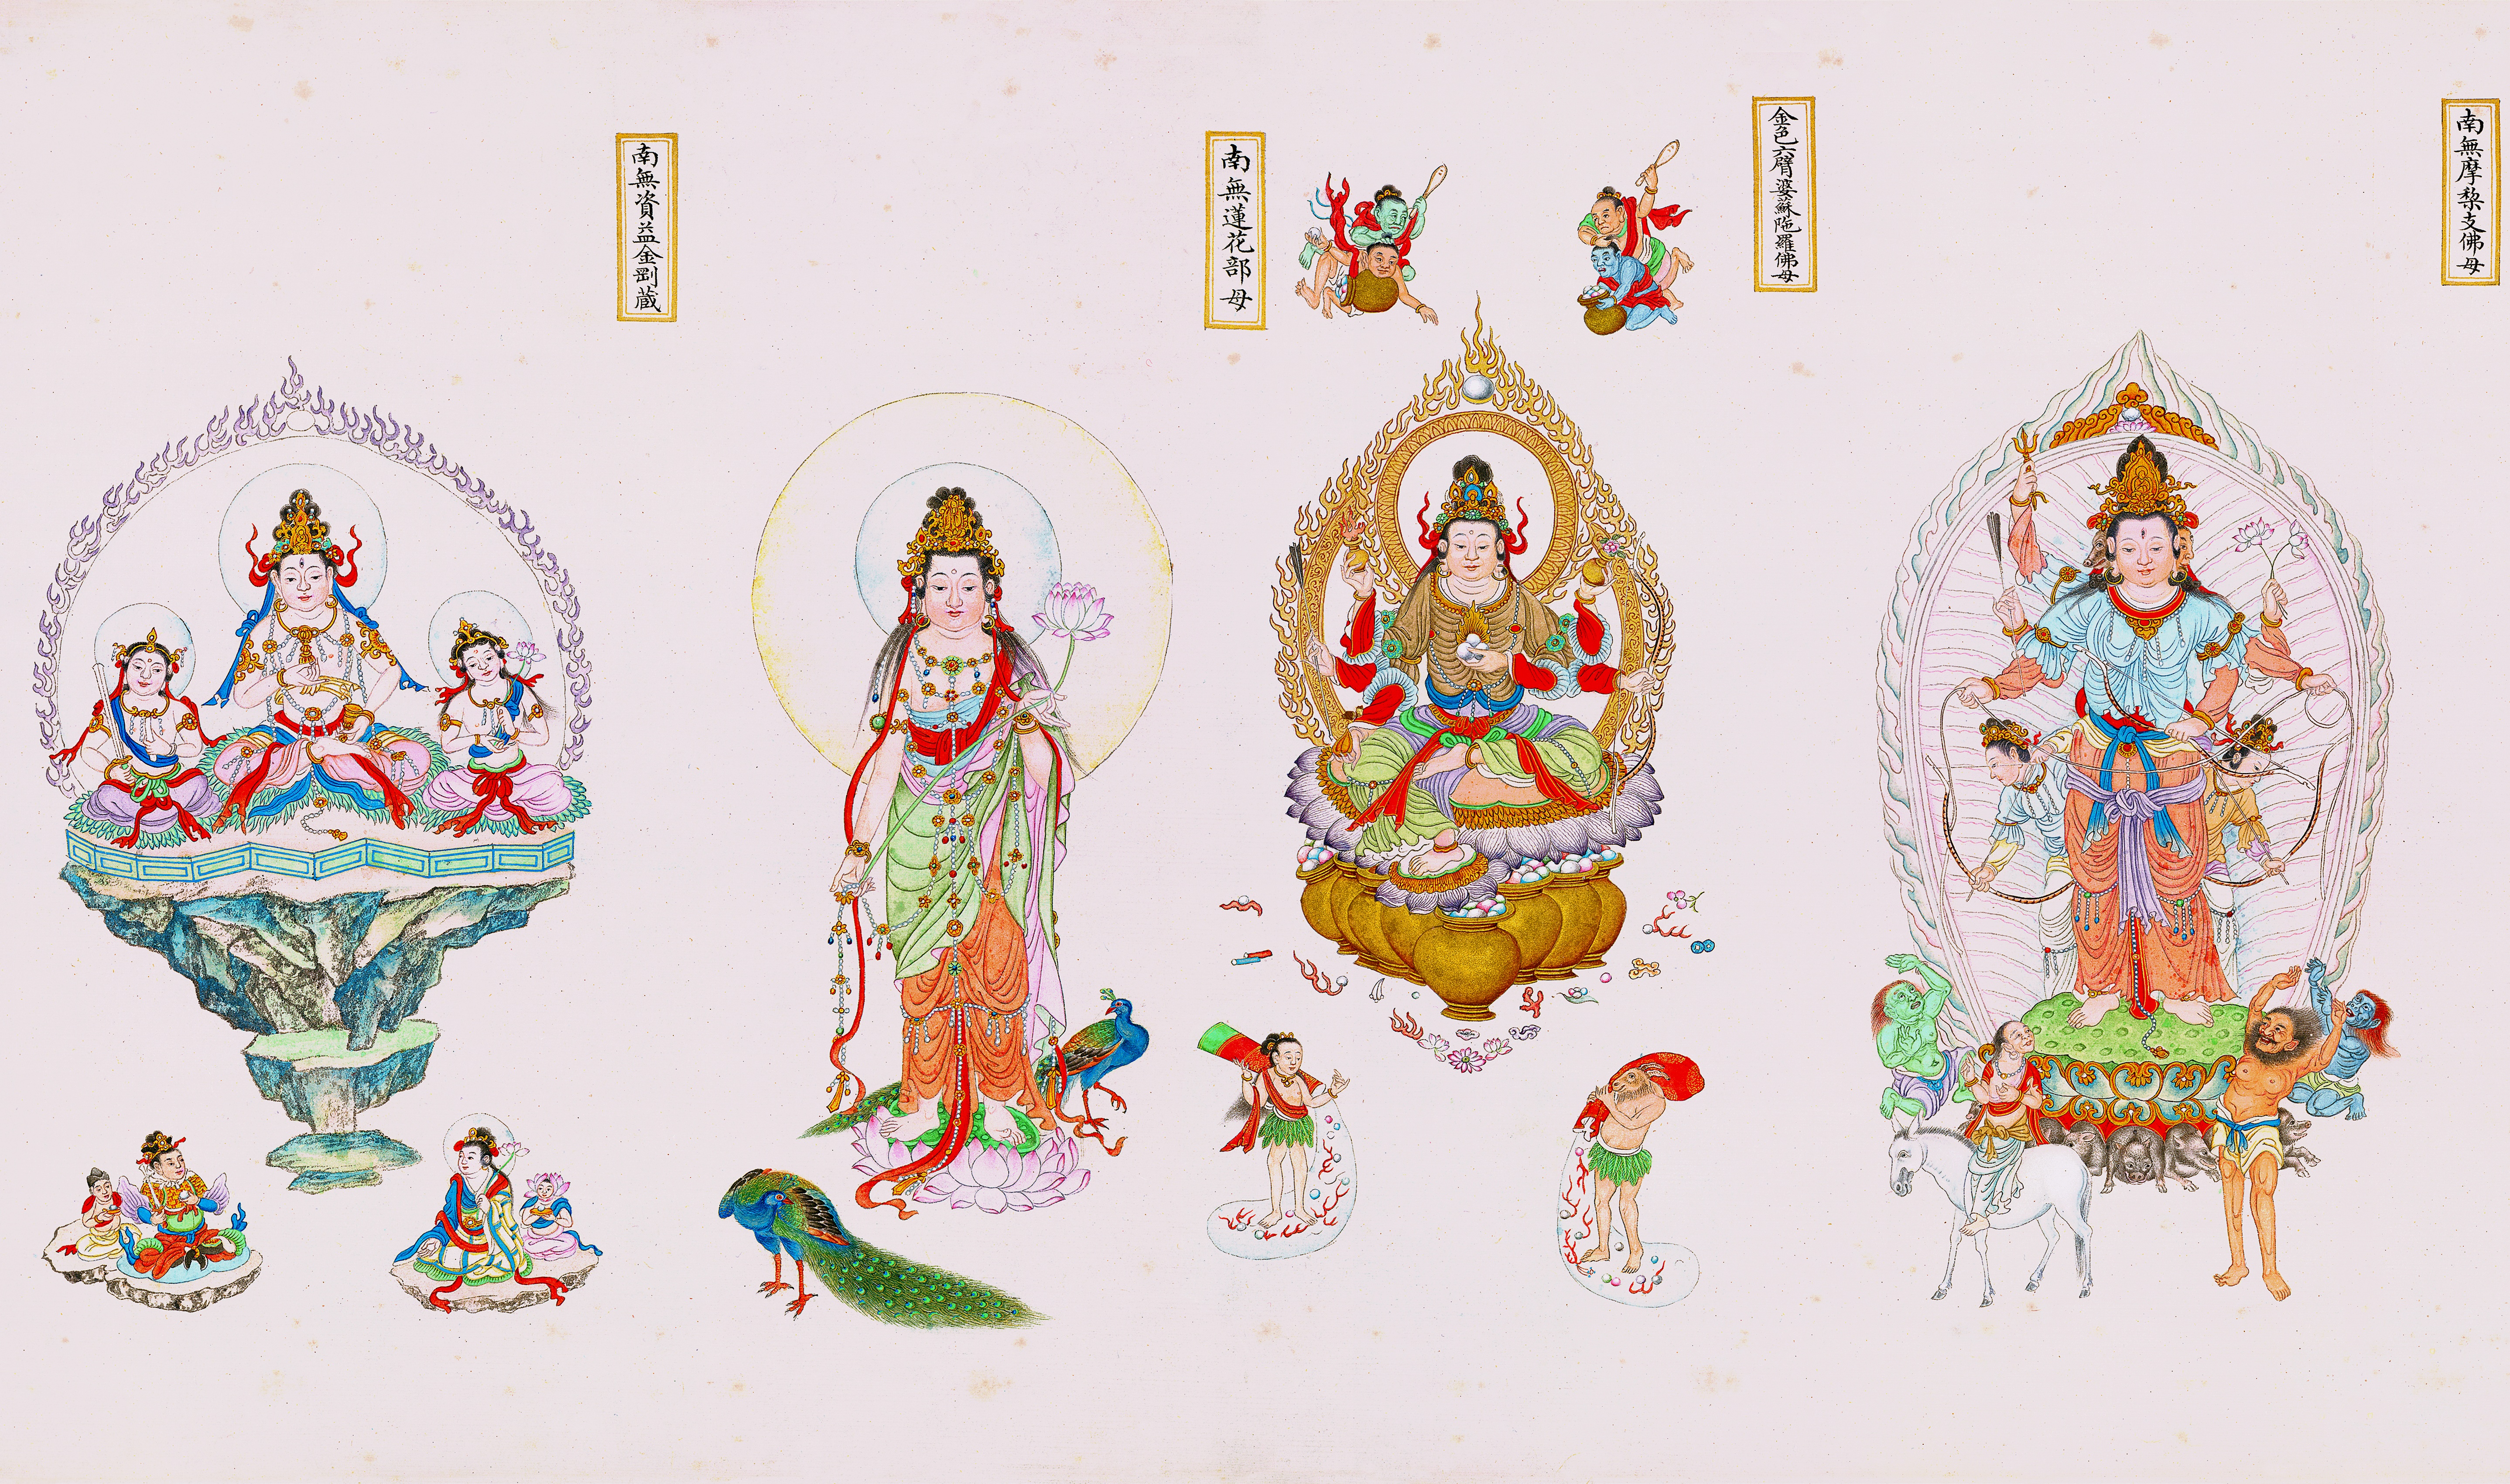 南無摩梨支佛母
金色六臂婆蘇陁羅佛母
南無蓮花部母
南無資益金剛蔵